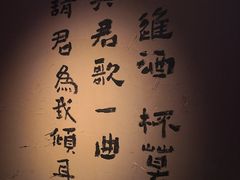 進酒 杯莫
君歌一曲
請君為我傾耳